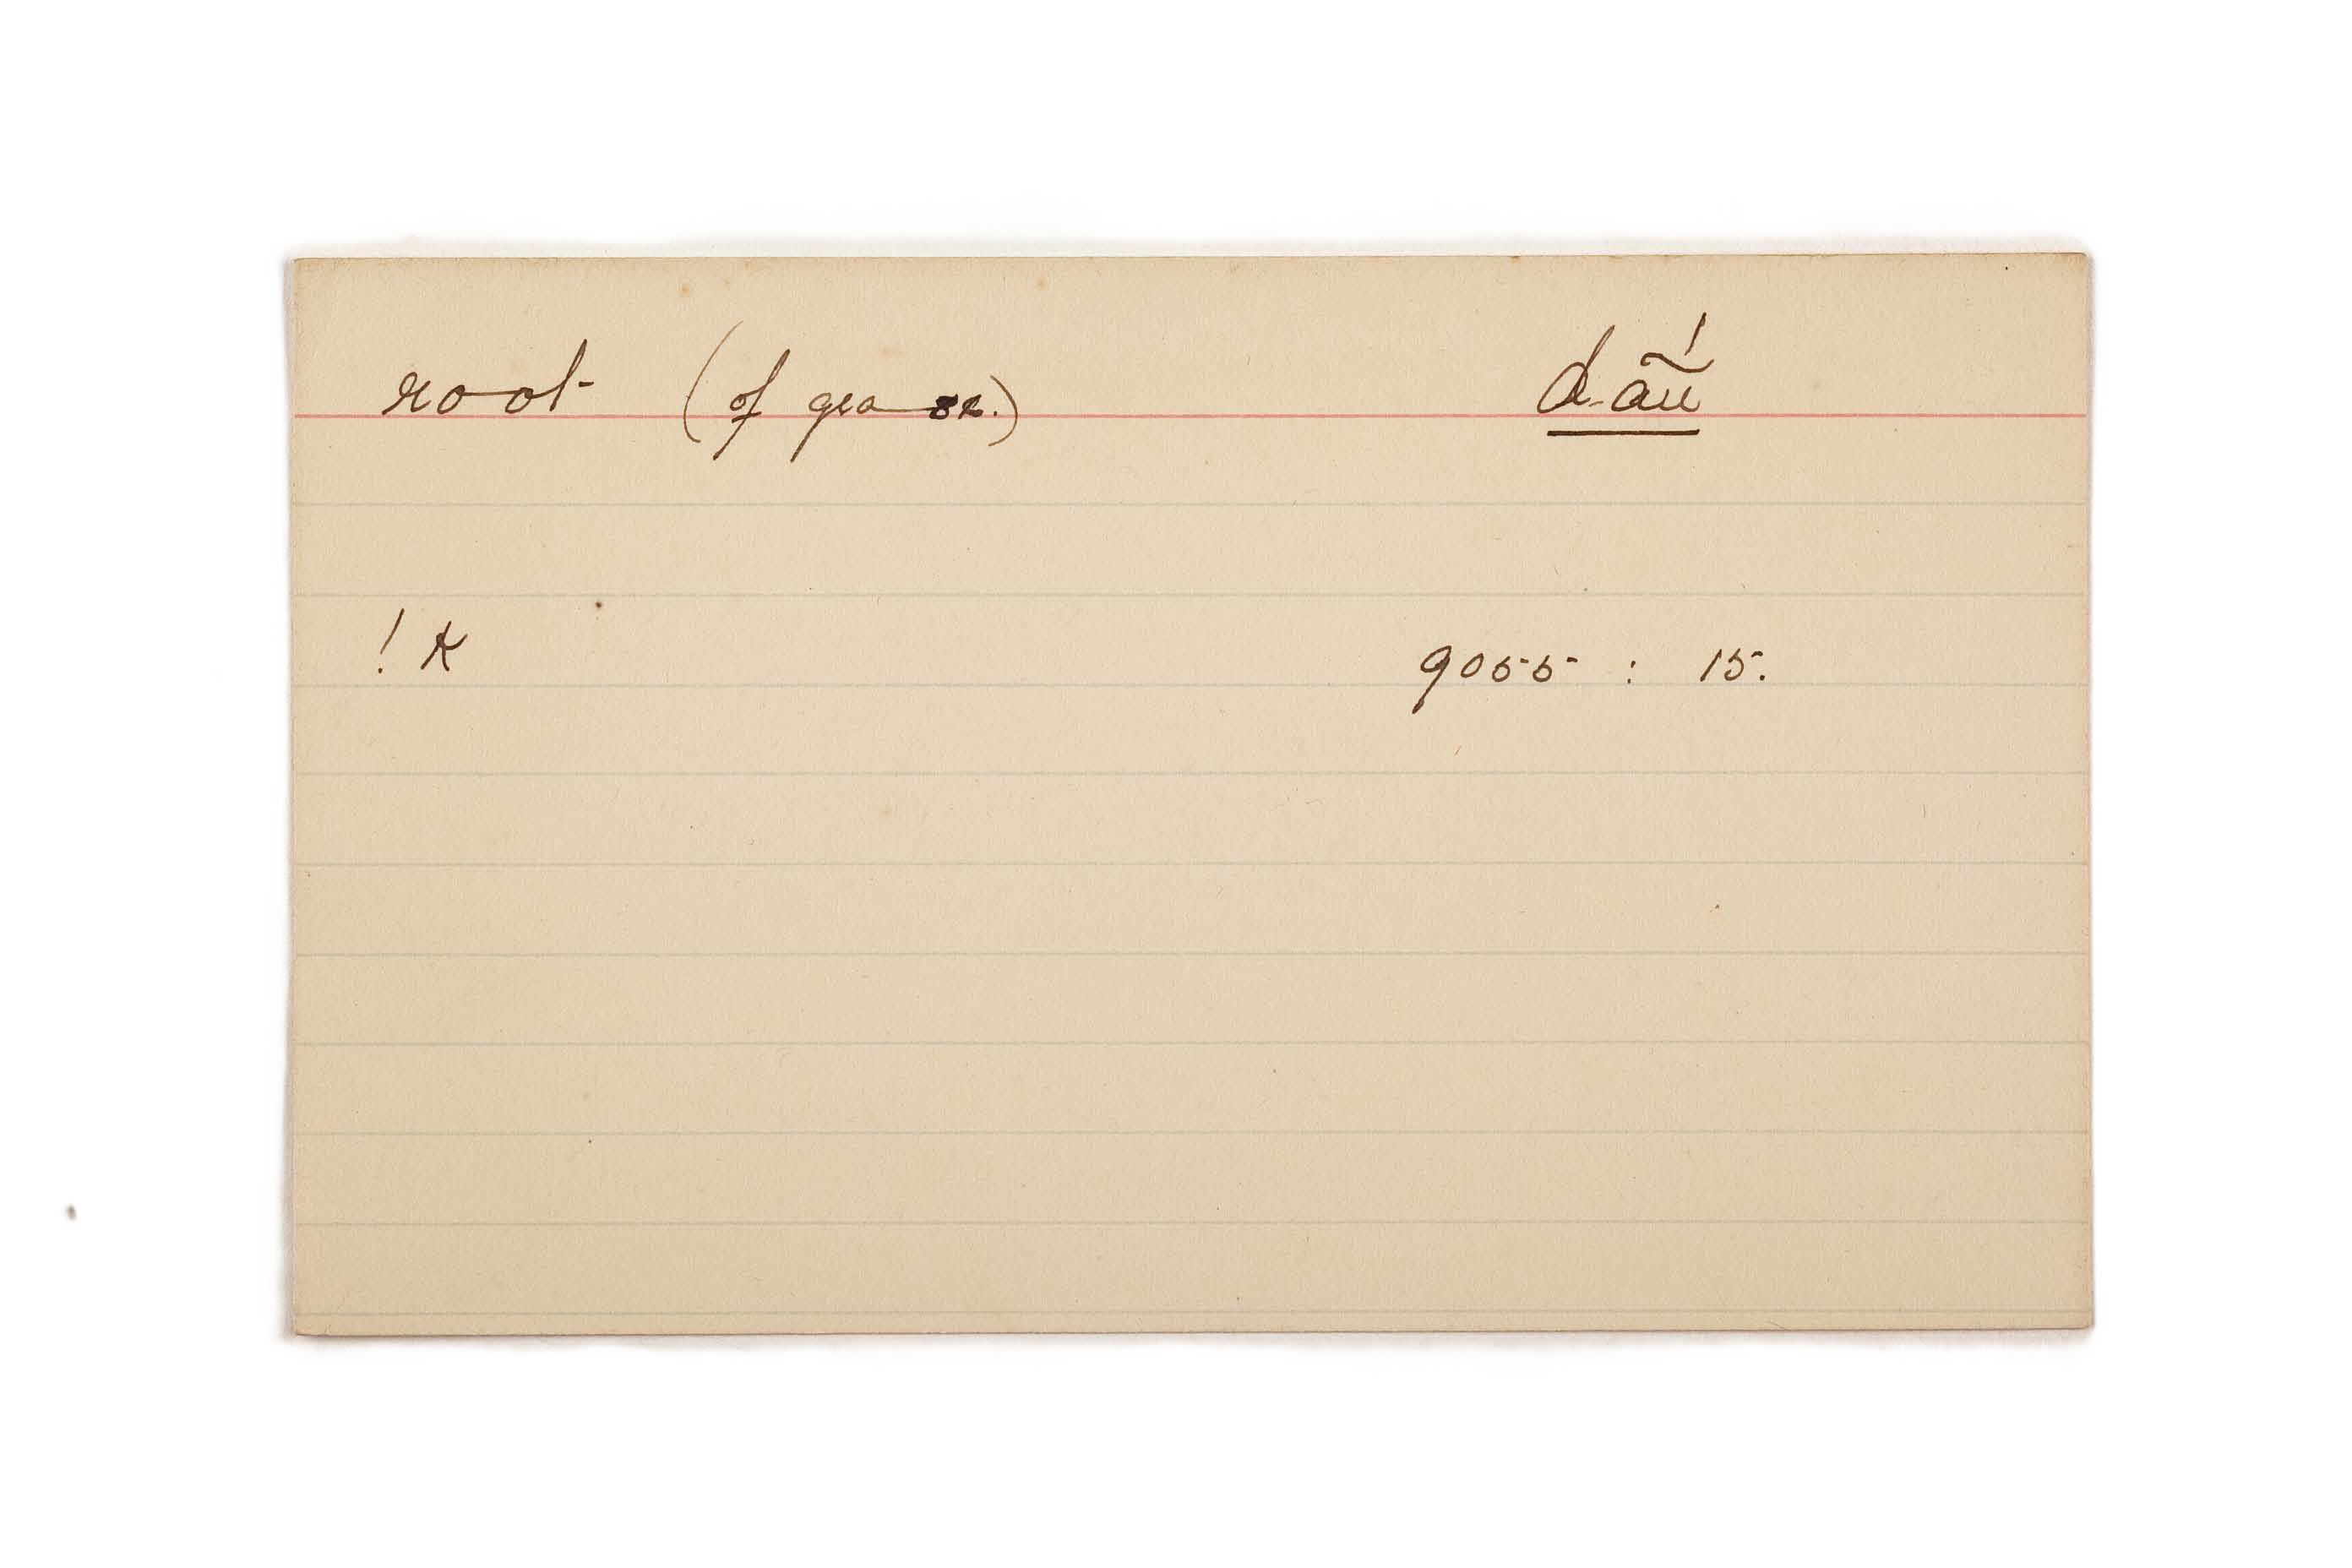 root (of grass.) d-aṹ
! k 9055 : 15.